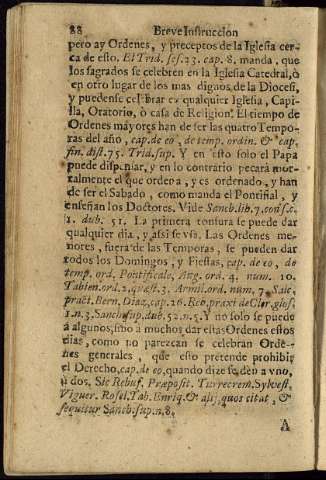 88 Breve Instruccion
pero ay Ordenes, y preceptos de la Iglesia cer-
ca de esto. El Trid. ses. 23. cap. 8. manda, que
los sagrados se celebren en la Iglesia Catedral, ò
en otro lugar de los mas dignos, de la Diocesi,
y puedense celebrar en qualquier Iglesia, Capi-
lla, Oratorio, ò casa de Religion. El tiempo de
Ordenes mayores han de ser las quatro Tempo-
ras del año, cap. de eo, de temp. ordin. & cap.
fin. dist. 75. Trid. sup. Y en esto solo el Papa
puede dispensar, y en lo contrario pecarà mor-
talmente el que ordena, y es ordenado, y han
de ser el Sabado, como manda el Pontifial, y
enseñan los Doctores. Vide Sanch. lib. 7. cons. c.
1. dub. 51. La primera tonsura se puede dar
qualquier dia, y assi se vsa. Las Ordenes me-
nores, fuera de las Temporas, se pueden dar
todos los Domingos, y Fiestas, cap. de eo, de
temp. ord. Pontificale, Ang. ord. 4. num. 10.
Tabien. ord. 2. quæst. 3. Armil. ord. num. 7. Saic.
pract. Bern. Diaz, cap. 26. Reo. praxi de Cler. glos.
1. n. 3. Sanch. sup. dub. 52. n. 5. Y no solo se puede
à algunos, sino à muchos dar estas Ordenes estos
dias, como no parezcan se celebran Orde-
nes generales, que esto pretende prohibir
el Derecho, cap. de eo, quando dize se den a vno,
ù dos. Sic Rebuf. Præposit. Turrecrem. Sylvest,
Viguer. Rosel. Tab. Enriq. & alij, quos citat, &
sequitur Sanch. sup. n. 8.
A